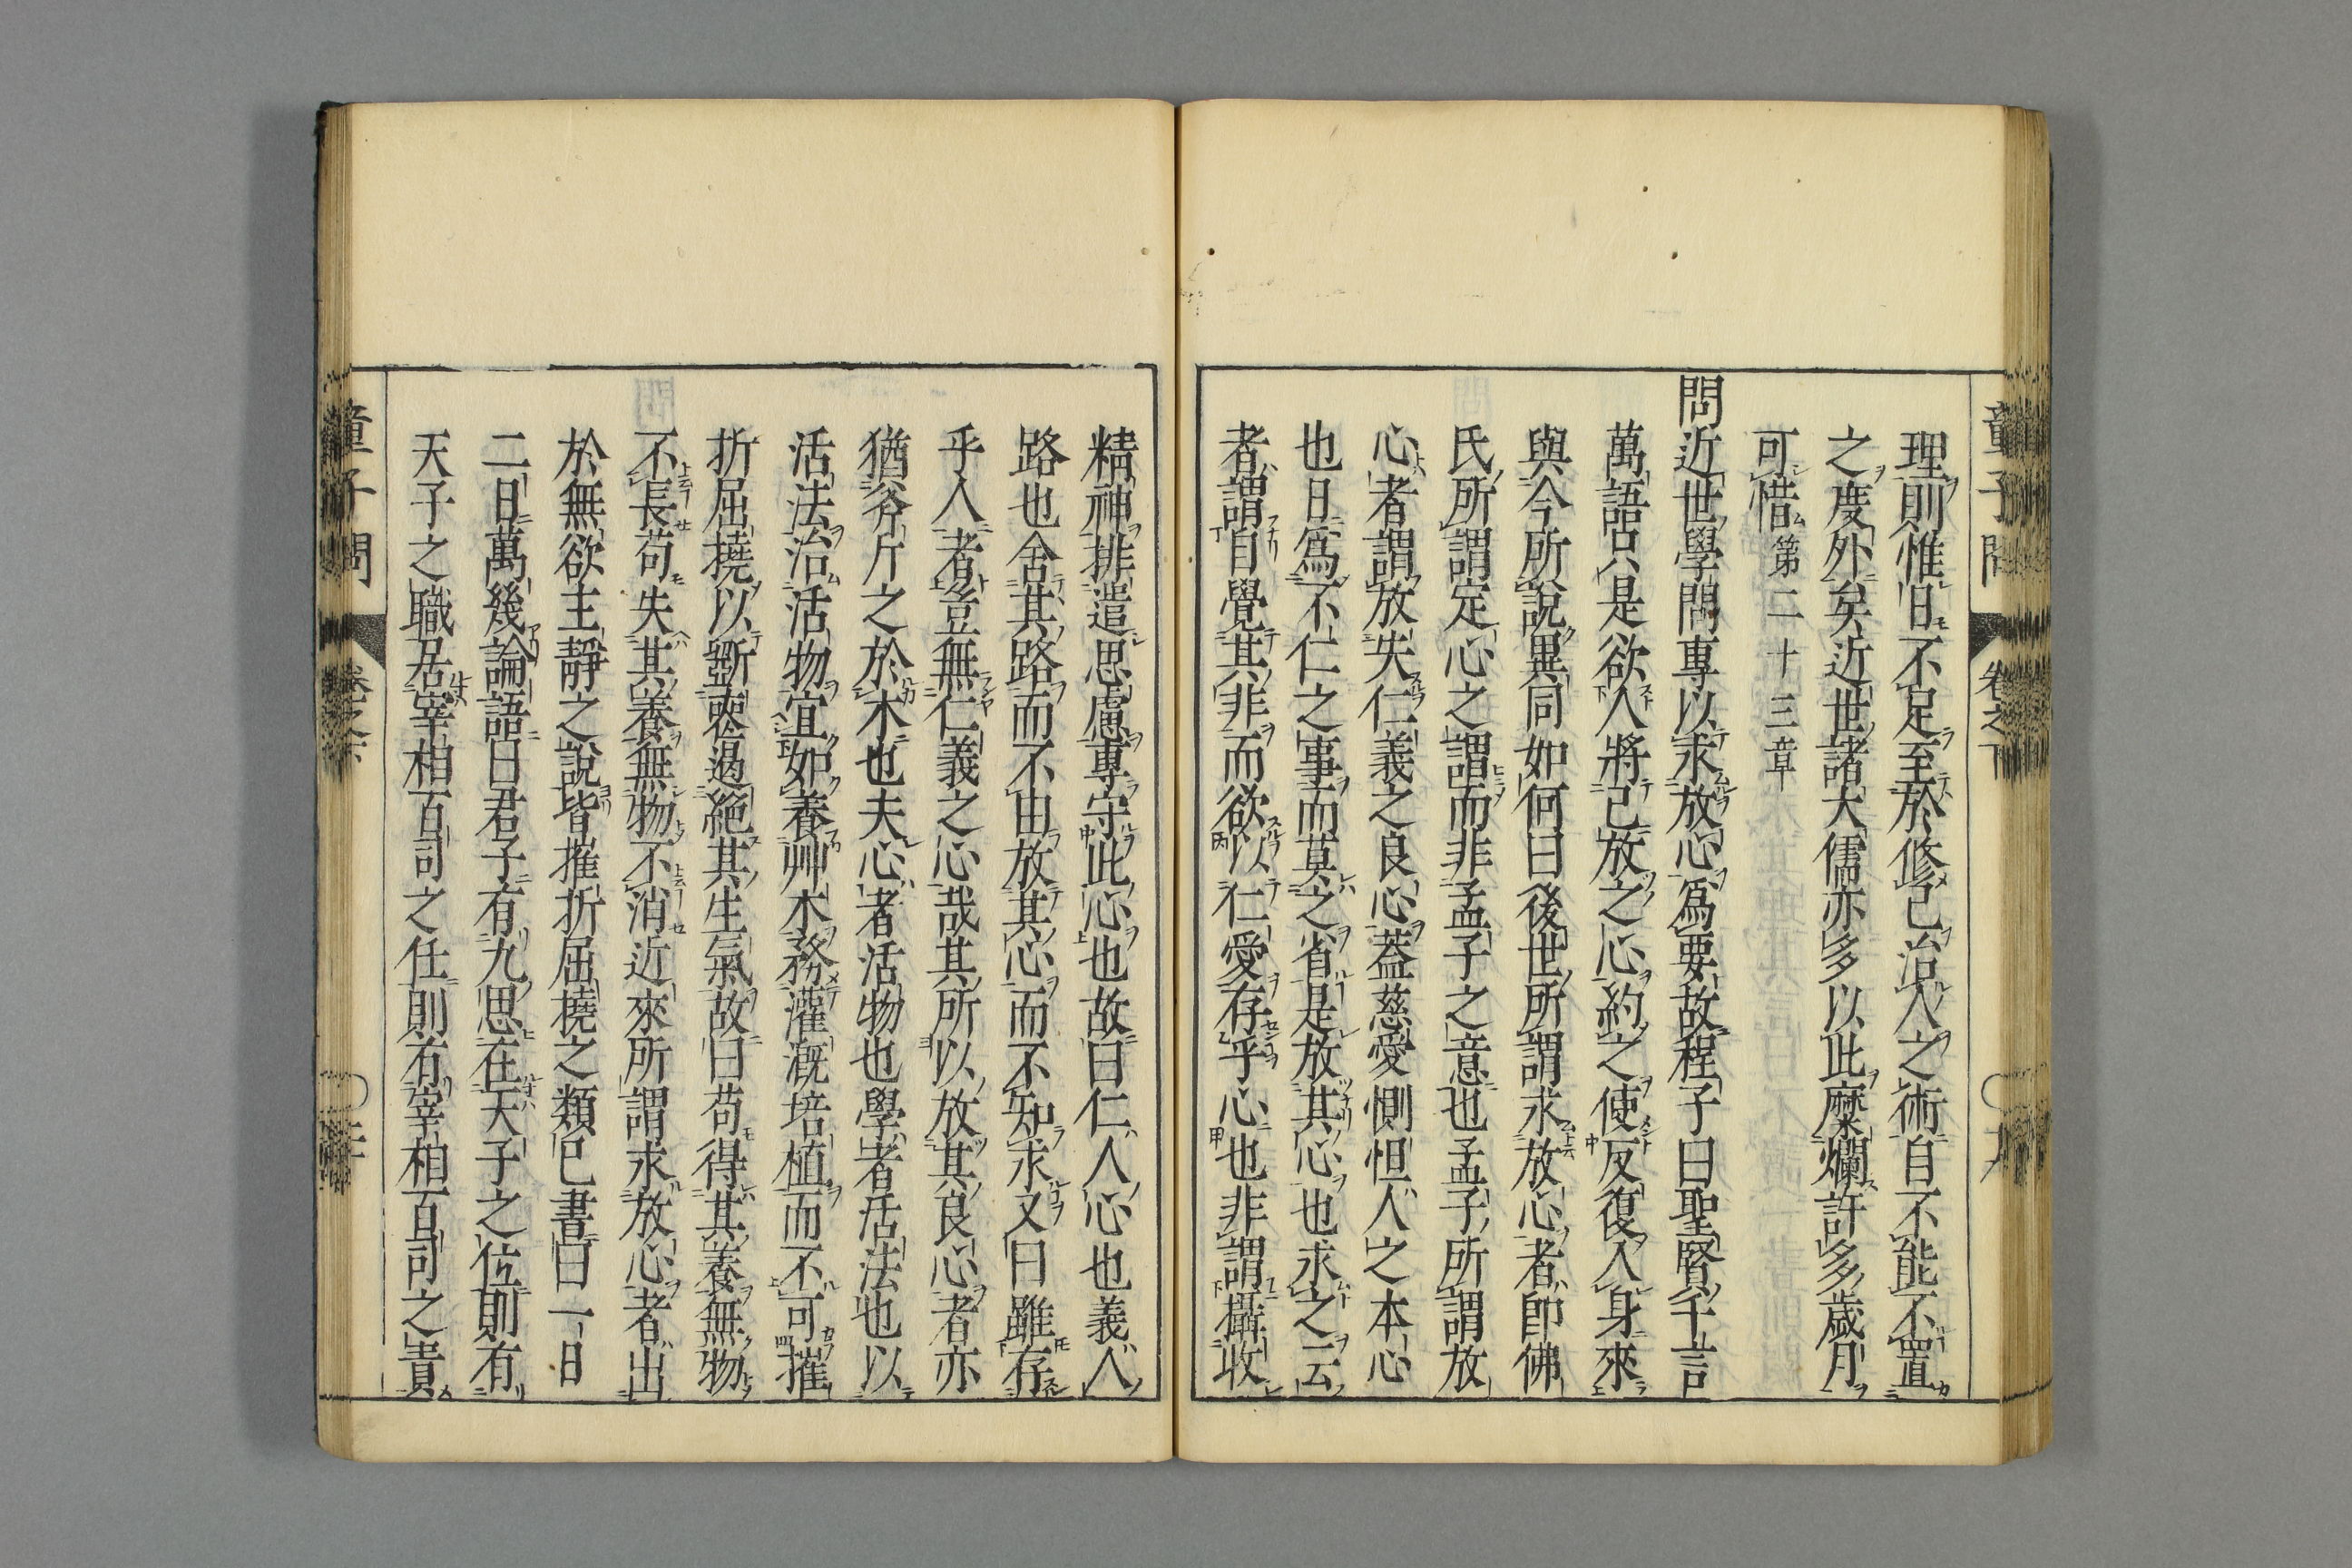 理則惟日不足至於修己治人之術自不能不置
之度外矣近世諸大儒亦多以此糜爛許多歲月
可惜 第二十三章
問近世學問專以求放心爲要故程子曰聖賢千言
萬語只是欲人將已放之心約之使反復入身來
與今所說異同如何曰後世所謂求放心者即佛
氏所謂定心之謂而非孟子之意也孟子所謂放
心者謂放失仁義之良心蓋慈愛惻怛人之本心
也日爲不仁之事而莫之省是放其心也求之云
者謂自覺其非而欲以仁愛存乎心也非謂攝收
精神排遣思慮專守此心也故曰仁人心也義人
路也舍其路而不由放其心而不知求又曰雖存
乎人者豈無仁義之心哉其所以放其良心者亦
猶斧斤之於木也夫心者活物也學者活法也以
活法治活物宜如養艸木務灌漑培植而不可摧
折屈撓以斲喪遏絕其生氣故曰苟得其養無物
不長苟失其養無物不消近來所謂求放心者出
於無欲主靜之說皆摧折屈撓之類已書曰一日
二日萬幾論語曰君子有九思在天子之位則有
天子之職居宰相百司之任則有宰相百司之責
童子問 卷之下
童子問 卷之下